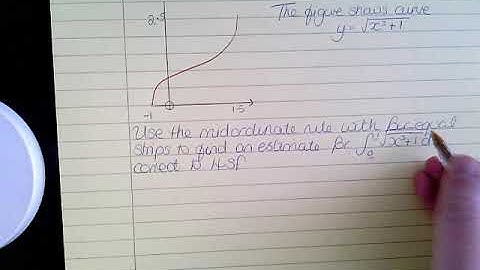 The figure shows curve
y = √x³+1
2.5
-1
1.5
Use the midordinate rule with four equal
strips to find an estimate for ∫ √x³+1 d
correct to 4sf